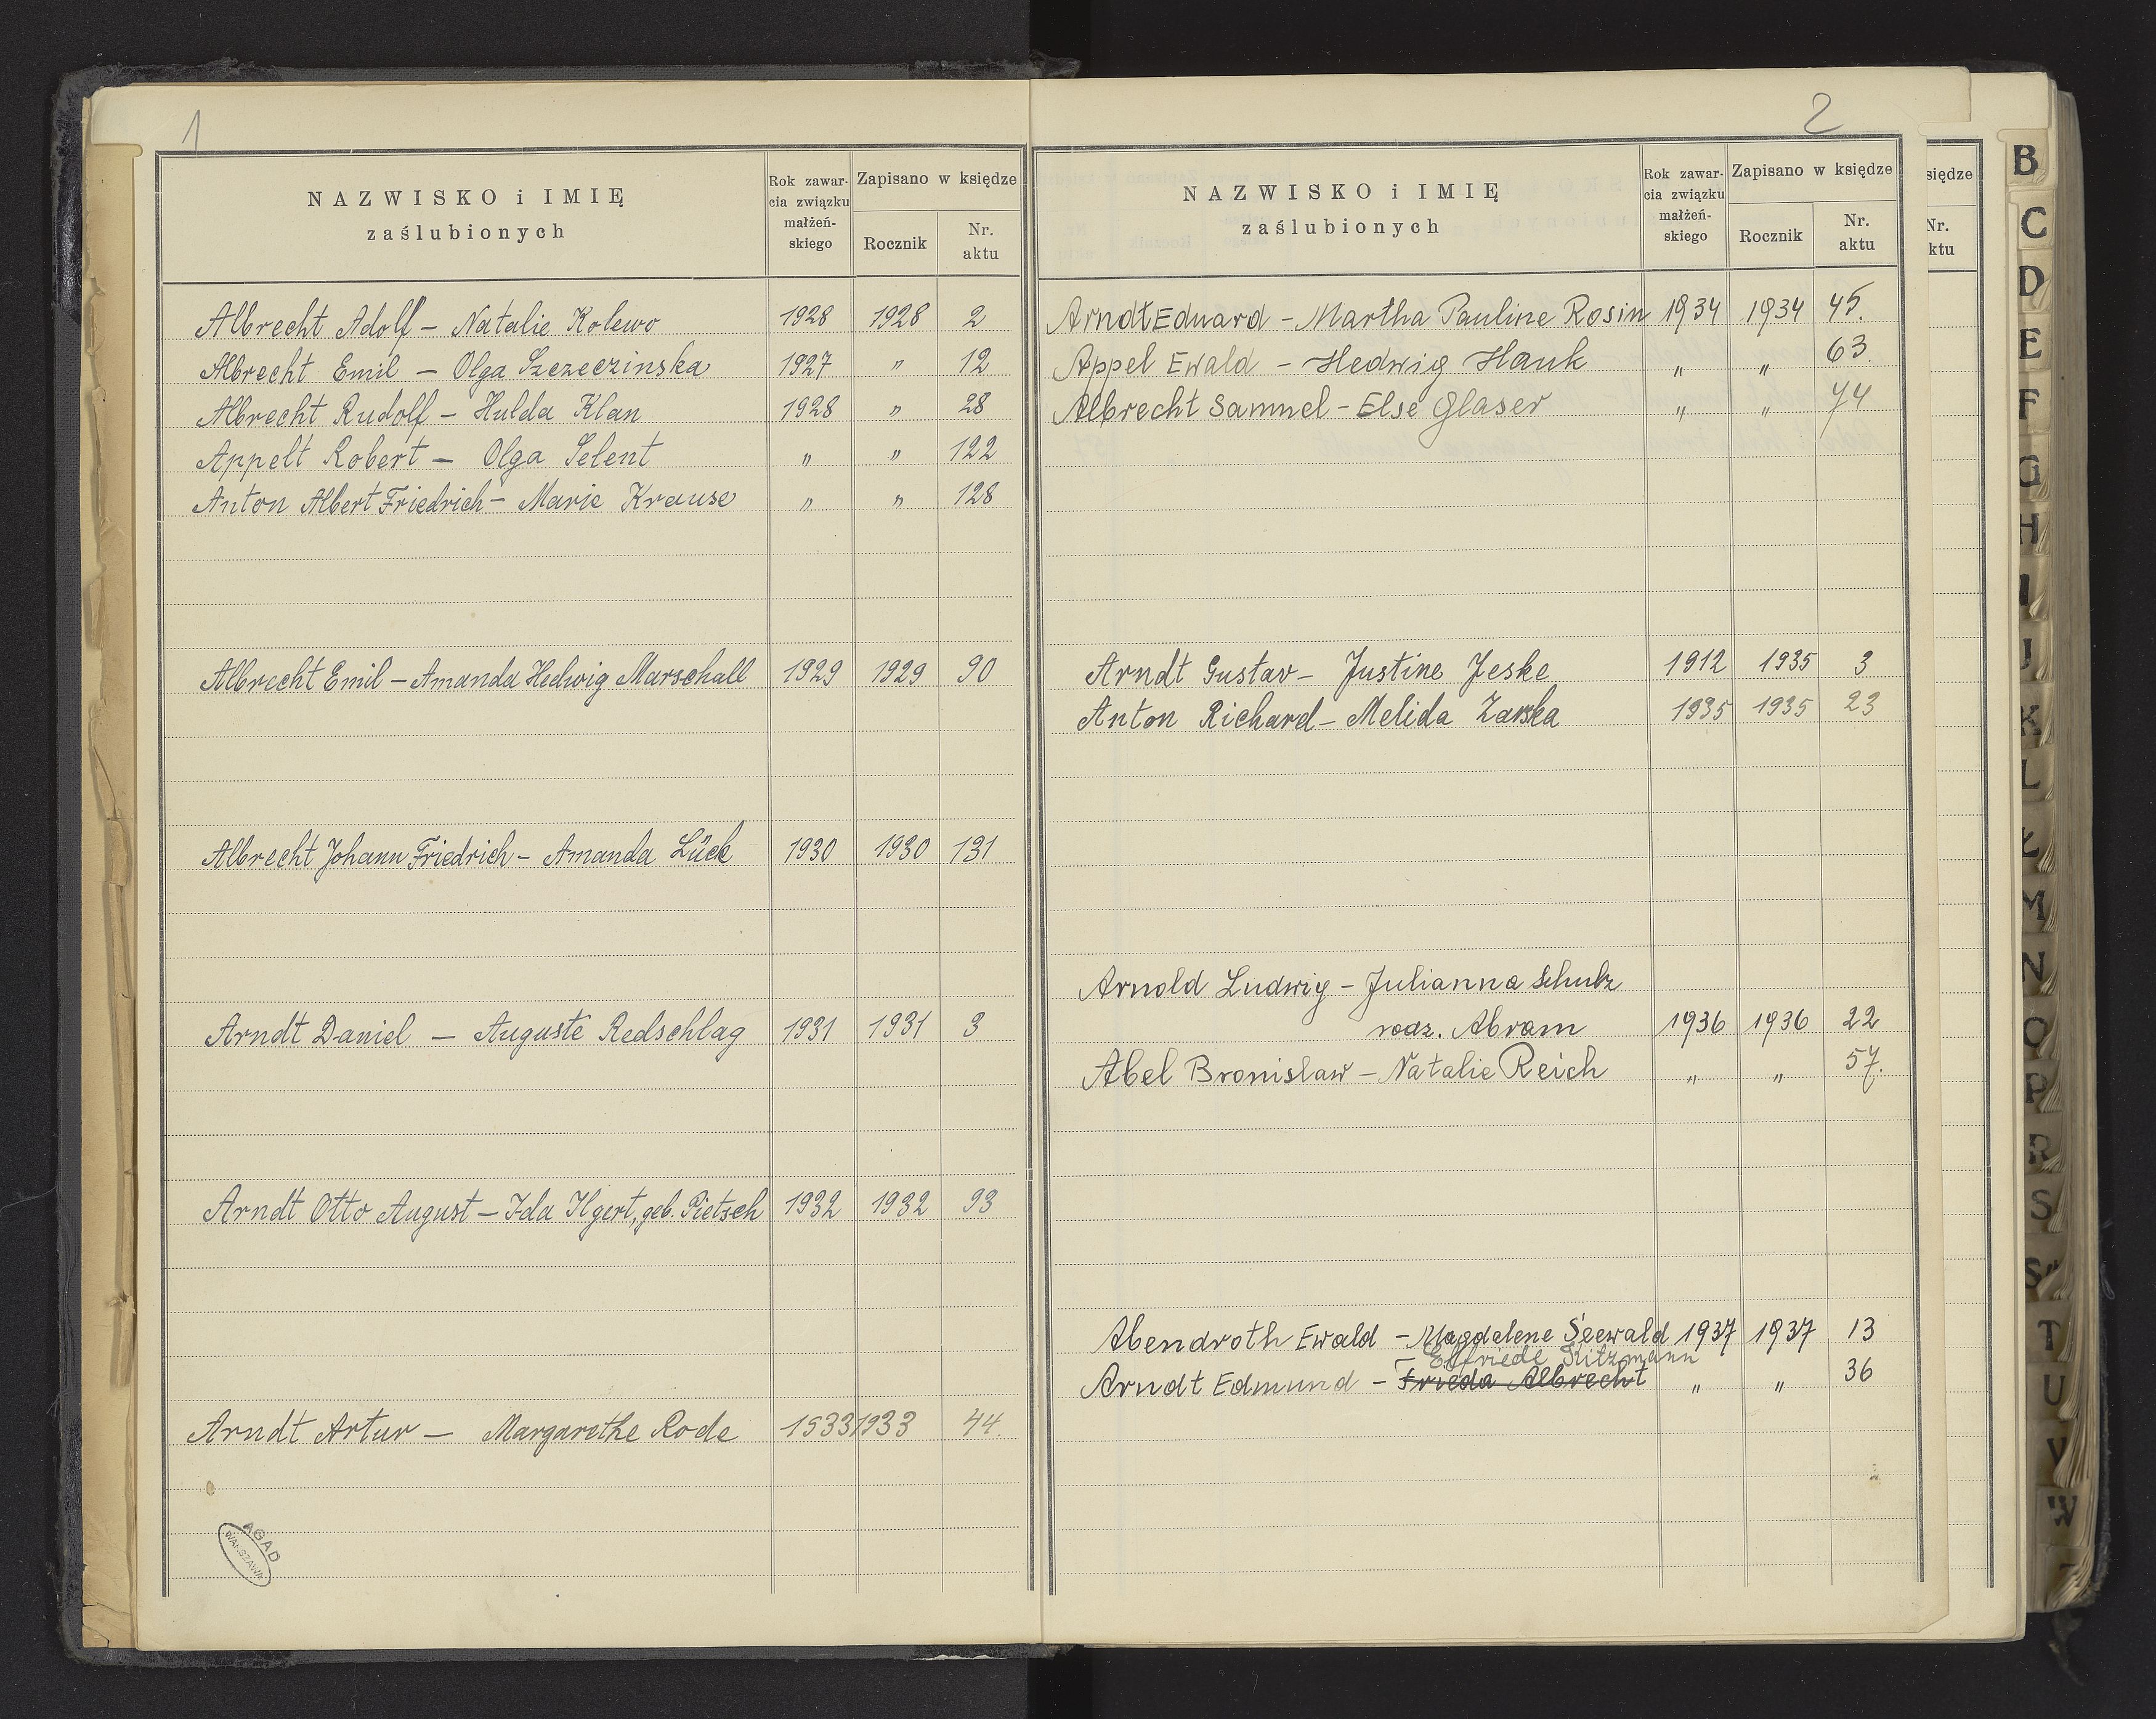 1
NAZWISKO i IMIĘ
zaślubionych
Rok zawar-
cia związku
małżeń-
skiego
Zapisano w księdze
Rocznik
Nr.
aktu
Albrecht Adolf – Natalie Kolewo 1928 1928 2
Albrecht Emil – Olga Szczeczinska 1927 " 12
Albrecht Rudolf – Hulda Klan 1928 " 28
Appelt Robert – Olga Selent " " 122
Anton Albert Friedrich – Marie Krause " " 128
Albrecht Emil – Amanda Hedwig Marschall 1929 1929 90
Albrecht Johann Friedrich – Amanda Lück 1930 1930 131
Arndt Daniel – Auguste Redschlag 1931 1931 3
Arndt Otto August – Ida Ilgert, geb. Pietsch 1932 1932 93
Arndt Artur – Margarethe Rode 1933 1933 44.
AGAD
WARSZAWA
2
NAZWISKO i IMIĘ
zaślubionych
Rok zawar-
cia związku
małżeń-
skiego
Zapisano w księdze
Rocznik
Nr.
aktu
Arndt Eduard – Martha Pauline Rosin 1934 1934 45.
Appel Ewald – Hedwig Hauk " " 63.
Albrecht Samuel – Else Glaser " " 74
Arndt Gustav – Justine Jeske 1912 1935 3
Anton Richard – Melida Zarska 1935 1935 23
Arnold Ludwig – Julianna Schulz
rodz. Abram 1936 1936 22
Abel Bronislaw – Natalie Reich " " 57.
Abendroth Ewald – Magdalene Seewald 1937 1937 13
– Elfriede Kitzmann
Arndt Edmund – Frieda Albrecht " " 36
siędze
Nr.
ktu
B
C
D
E
F
G
H
I
J
K
L
Ł
M
N
O
P
R
S
Ś
T
U
V
W